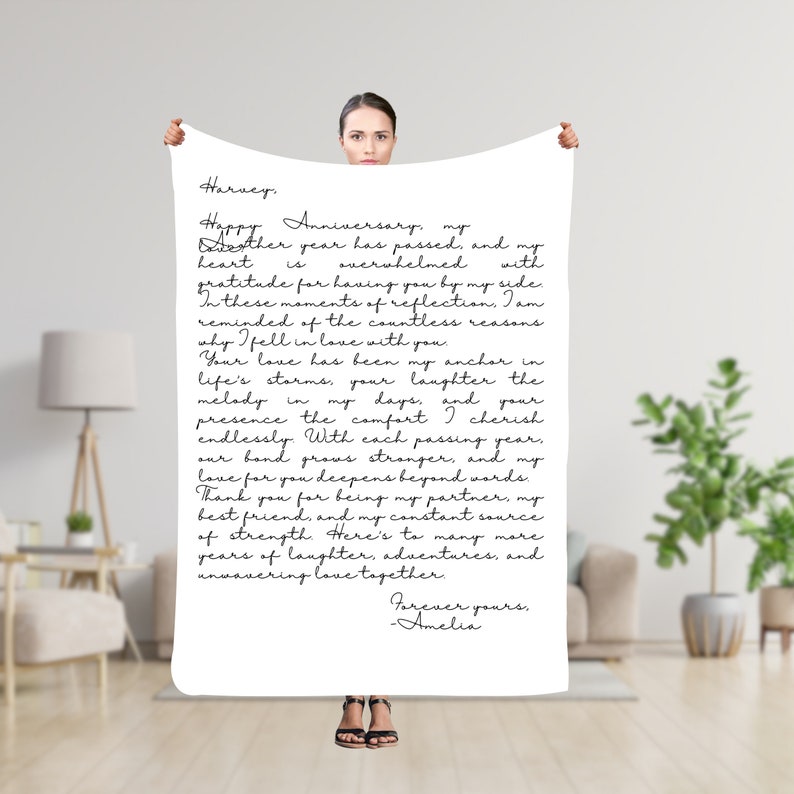 Harvey,
Happy Anniversary, my
love!
Another year has passed, and my
heart is overwhelmed with
gratitude for having you by my side.
In these moments of reflection, I am
reminded of the countless reasons
why I fell in love with you.
Your love has been my anchor in
life's storms, your laughter the
melody in my days, and your
presence the comfort I cherish
endlessly. With each passing year,
our bond grows stronger, and my
love for you deepens beyond words.
Thank you for being my partner, my
best friend, and my constant source
of strength. Here's to many more
years of laughter, adventures, and
unwavering love together.
Forever yours,
-Amelia